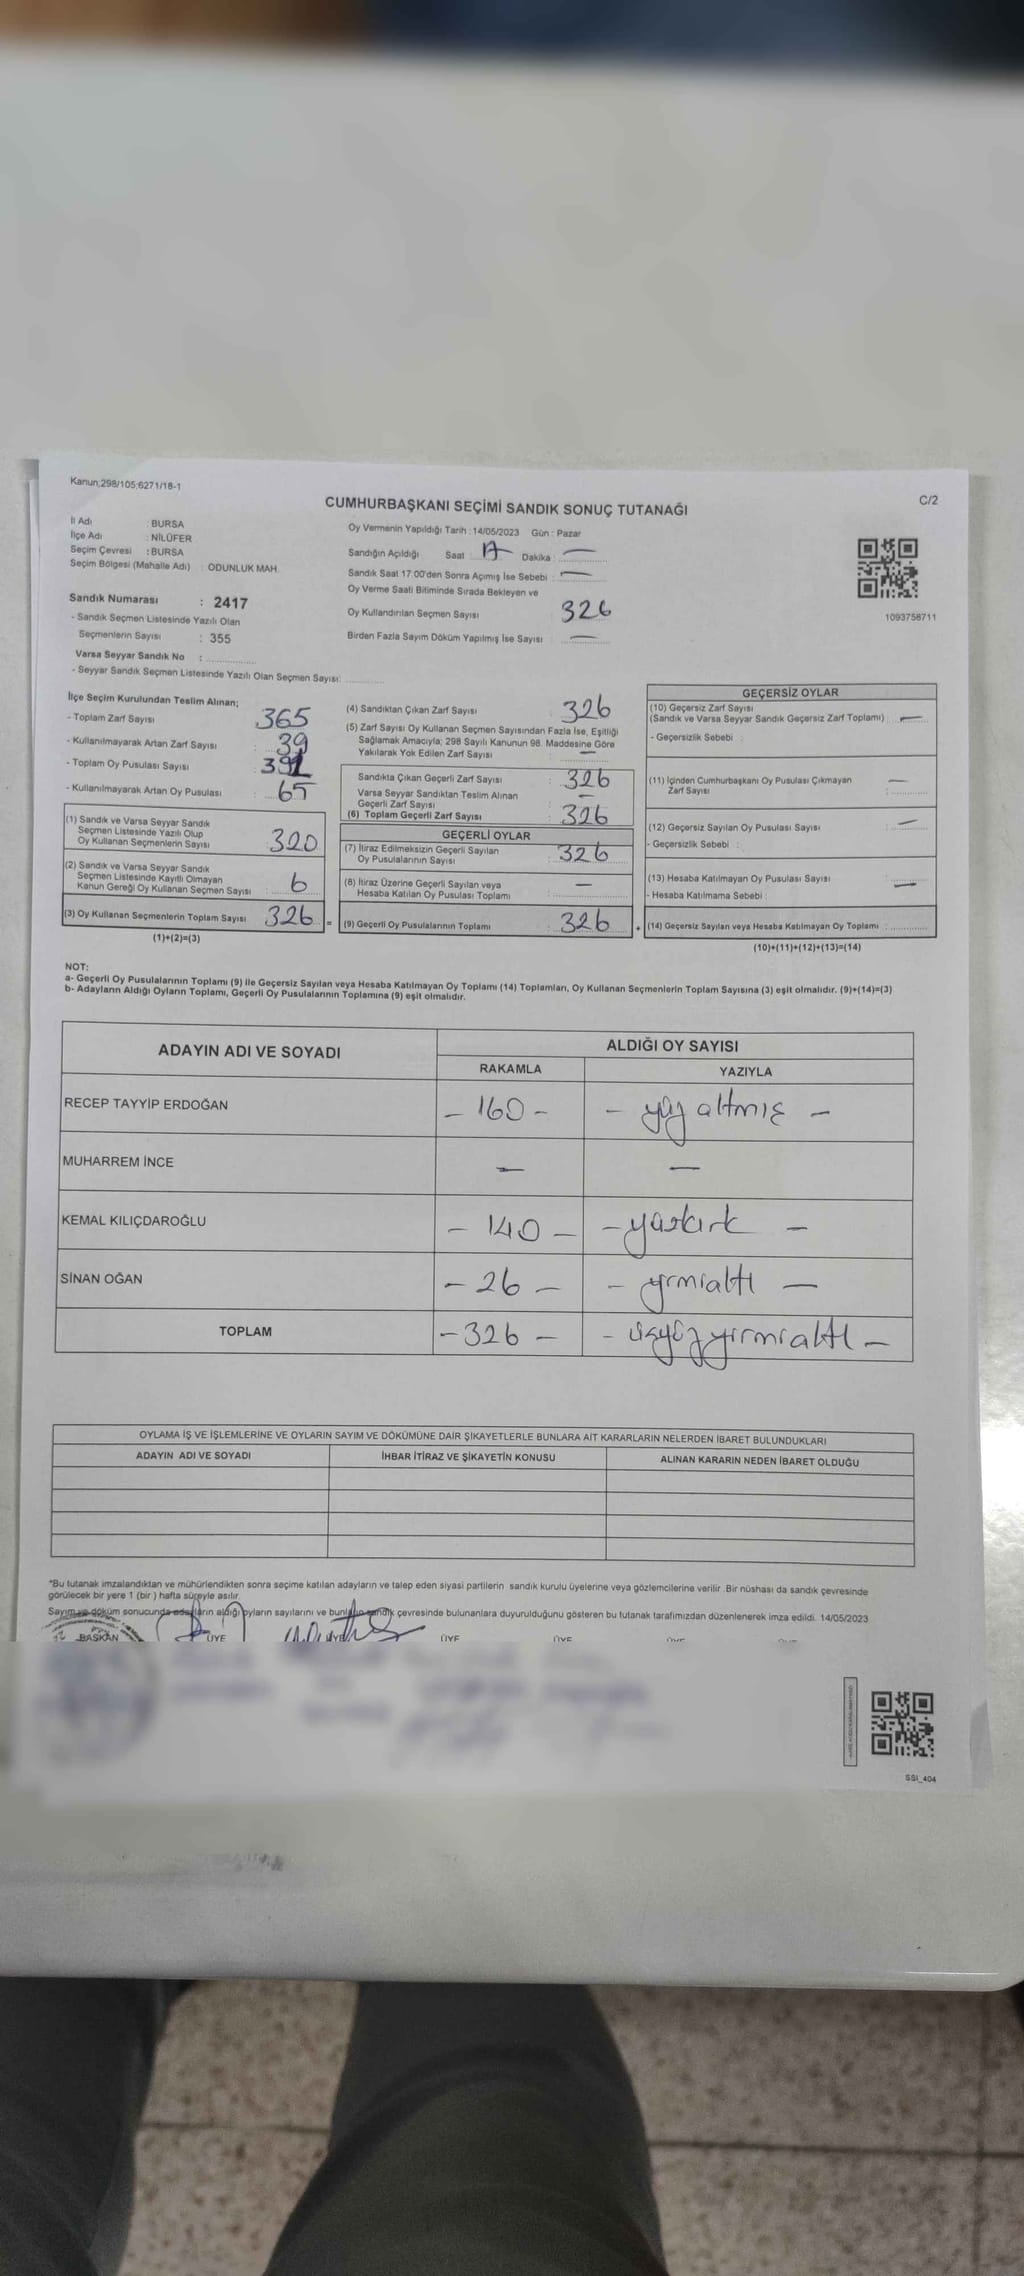 Kanun;298/105;6271/18-1
CUMHURBAŞKANI SEÇİMİ SANDIK SONUÇ TUTANAĞI
C/2
İl Adı : BURSA
İlçe Adı : NİLÜFER
Seçim Çevresi : BURSA
Seçim Bölgesi (Mahalle Adı) : ODUNLUK MAH.
Sandık Numarası : 2417
- Sandık Seçmen Listesinde Yazılı Olan
Seçmenlerin Sayısı : 355
Varsa Seyyar Sandık No :
- Seyyar Sandık Seçmen Listesinde Yazılı Olan Seçmen Sayısı:
Oy Vermenin Yapıldığı Tarih : 14/05/2023 Gün : Pazar
Sandığın Açıldığı Saat : 17 Dakika : —
Sandık Saat 17.00'den Sonra Açılmış İse Sebebi : —
Oy Verme Saati Bitiminde Sırada Bekleyen ve
Oy Kullandırılan Seçmen Sayısı 326
Birden Fazla Sayım Döküm Yapılmış İse Sayısı : —
1093758711
İlçe Seçim Kurulundan Teslim Alınan;
- Toplam Zarf Sayısı 365
- Kullanılmayarak Artan Zarf Sayısı : 39
- Toplam Oy Pusulası Sayısı : 391
- Kullanılmayarak Artan Oy Pusulası : 65
(1) Sandık ve Varsa Seyyar Sandık
Seçmen Listesinde Yazılı Olup
Oy Kullanan Seçmenlerin Sayısı : 320
(2) Sandık ve Varsa Seyyar Sandık
Seçmen Listesinde Kayıtlı Olmayan
Kanun Gereği Oy Kullanan Seçmen Sayısı : 6
(3) Oy Kullanan Seçmenlerin Toplam Sayısı 326 =
(1)+(2)=(3)
(4) Sandıktan Çıkan Zarf Sayısı : 326
(5) Zarf Sayısı Oy Kullanan Seçmen Sayısından Fazla İse, Eşitliği
Sağlamak Amacıyla; 298 Sayılı Kanunun 98. Maddesine Göre
Yakılarak Yok Edilen Zarf Sayısı : —
Sandıkta Çıkan Geçerli Zarf Sayısı : 326
Varsa Seyyar Sandıktan Teslim Alınan
Geçerli Zarf Sayısı : —
(6) Toplam Geçerli Zarf Sayısı : 326
GEÇERLİ OYLAR
(7) İtiraz Edilmeksizin Geçerli Sayılan
Oy Pusulalarının Sayısı : 326
(8) İtiraz Üzerine Geçerli Sayılan veya
Hesaba Katılan Oy Pusulası Toplamı : —
(9) Geçerli Oy Pusulalarının Toplamı : 326 +
GEÇERSİZ OYLAR
(10) Geçersiz Zarf Sayısı
(Sandık ve Varsa Seyyar Sandık Geçersiz Zarf Toplamı) : —
- Geçersizlik Sebebi :
(11) İçinden Cumhurbaşkanı Oy Pusulası Çıkmayan
Zarf Sayısı : —
(12) Geçersiz Sayılan Oy Pusulası Sayısı : —
- Geçersizlik Sebebi :
(13) Hesaba Katılmayan Oy Pusulası Sayısı : —
- Hesaba Katılmama Sebebi :
(14) Geçersiz Sayılan veya Hesaba Katılmayan Oy Toplamı :
(10)+(11)+(12)+(13)=(14)
NOT:
a- Geçerli Oy Pusulalarının Toplamı (9) ile Geçersiz Sayılan veya Hesaba Katılmayan Oy Toplamı (14) Toplamları, Oy Kullanan Seçmenlerin Toplam Sayısına (3) eşit olmalıdır. (9)+(14)=(3)
b- Adayların Aldığı Oyların Toplamı, Geçerli Oy Pusulalarının Toplamına (9) eşit olmalıdır.
ADAYIN ADI VE SOYADI
ALDIĞI OY SAYISI
RAKAMLA YAZIYLA
RECEP TAYYİP ERDOĞAN - 160 - - yüz altmış -
MUHARREM İNCE — —
KEMAL KILIÇDAROĞLU - 140 - - yüzkırk -
SİNAN OĞAN - 26 - - yirmialtı -
TOPLAM - 326 - - üçyüzyirmialtı -
OYLAMA İŞ VE İŞLEMLERİNE VE OYLARIN SAYIM VE DÖKÜMÜNE DAİR ŞİKAYETLERLE BUNLARA AİT KARARLARIN NELERDEN İBARET BULUNDUKLARI
ADAYIN ADI VE SOYADI İHBAR İTİRAZ VE ŞİKAYETİN KONUSU ALINAN KARARIN NEDEN İBARET OLDUĞU
*Bu tutanak imzalandıktan ve mühürlendikten sonra seçime katılan adayların ve talep eden siyasi partilerin sandık kurulu üyelerine veya gözlemcilerine verilir. Bir nüshası da sandık çevresinde
görülecek bir yere 1 (bir ) hafta süreyle asılır.
Sayım ve döküm sonucunda adayların aldığı oyların sayılarını ve bunların sandık çevresinde bulunanlara duyurulduğunu gösteren bu tutanak tarafımızdan düzenlenerek imza edildi. 14/05/2023
BAŞKAN ÜYE ÜYE ÜYE ÜYE
SSI_404